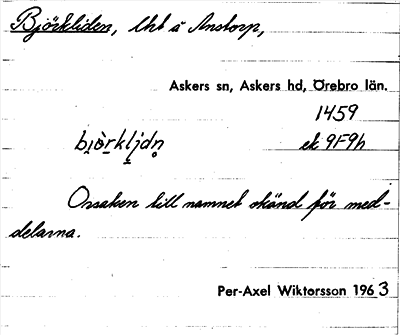 Björkliden, lht å Anstorp,
Askers sn, Askers hd, Örebro län.
1459
bi̯ö̀rkljdn̥ ek 9F9h
Orsaken till namnet okänd för med-
delarna.
Per-Axel Wiktorsson 1963